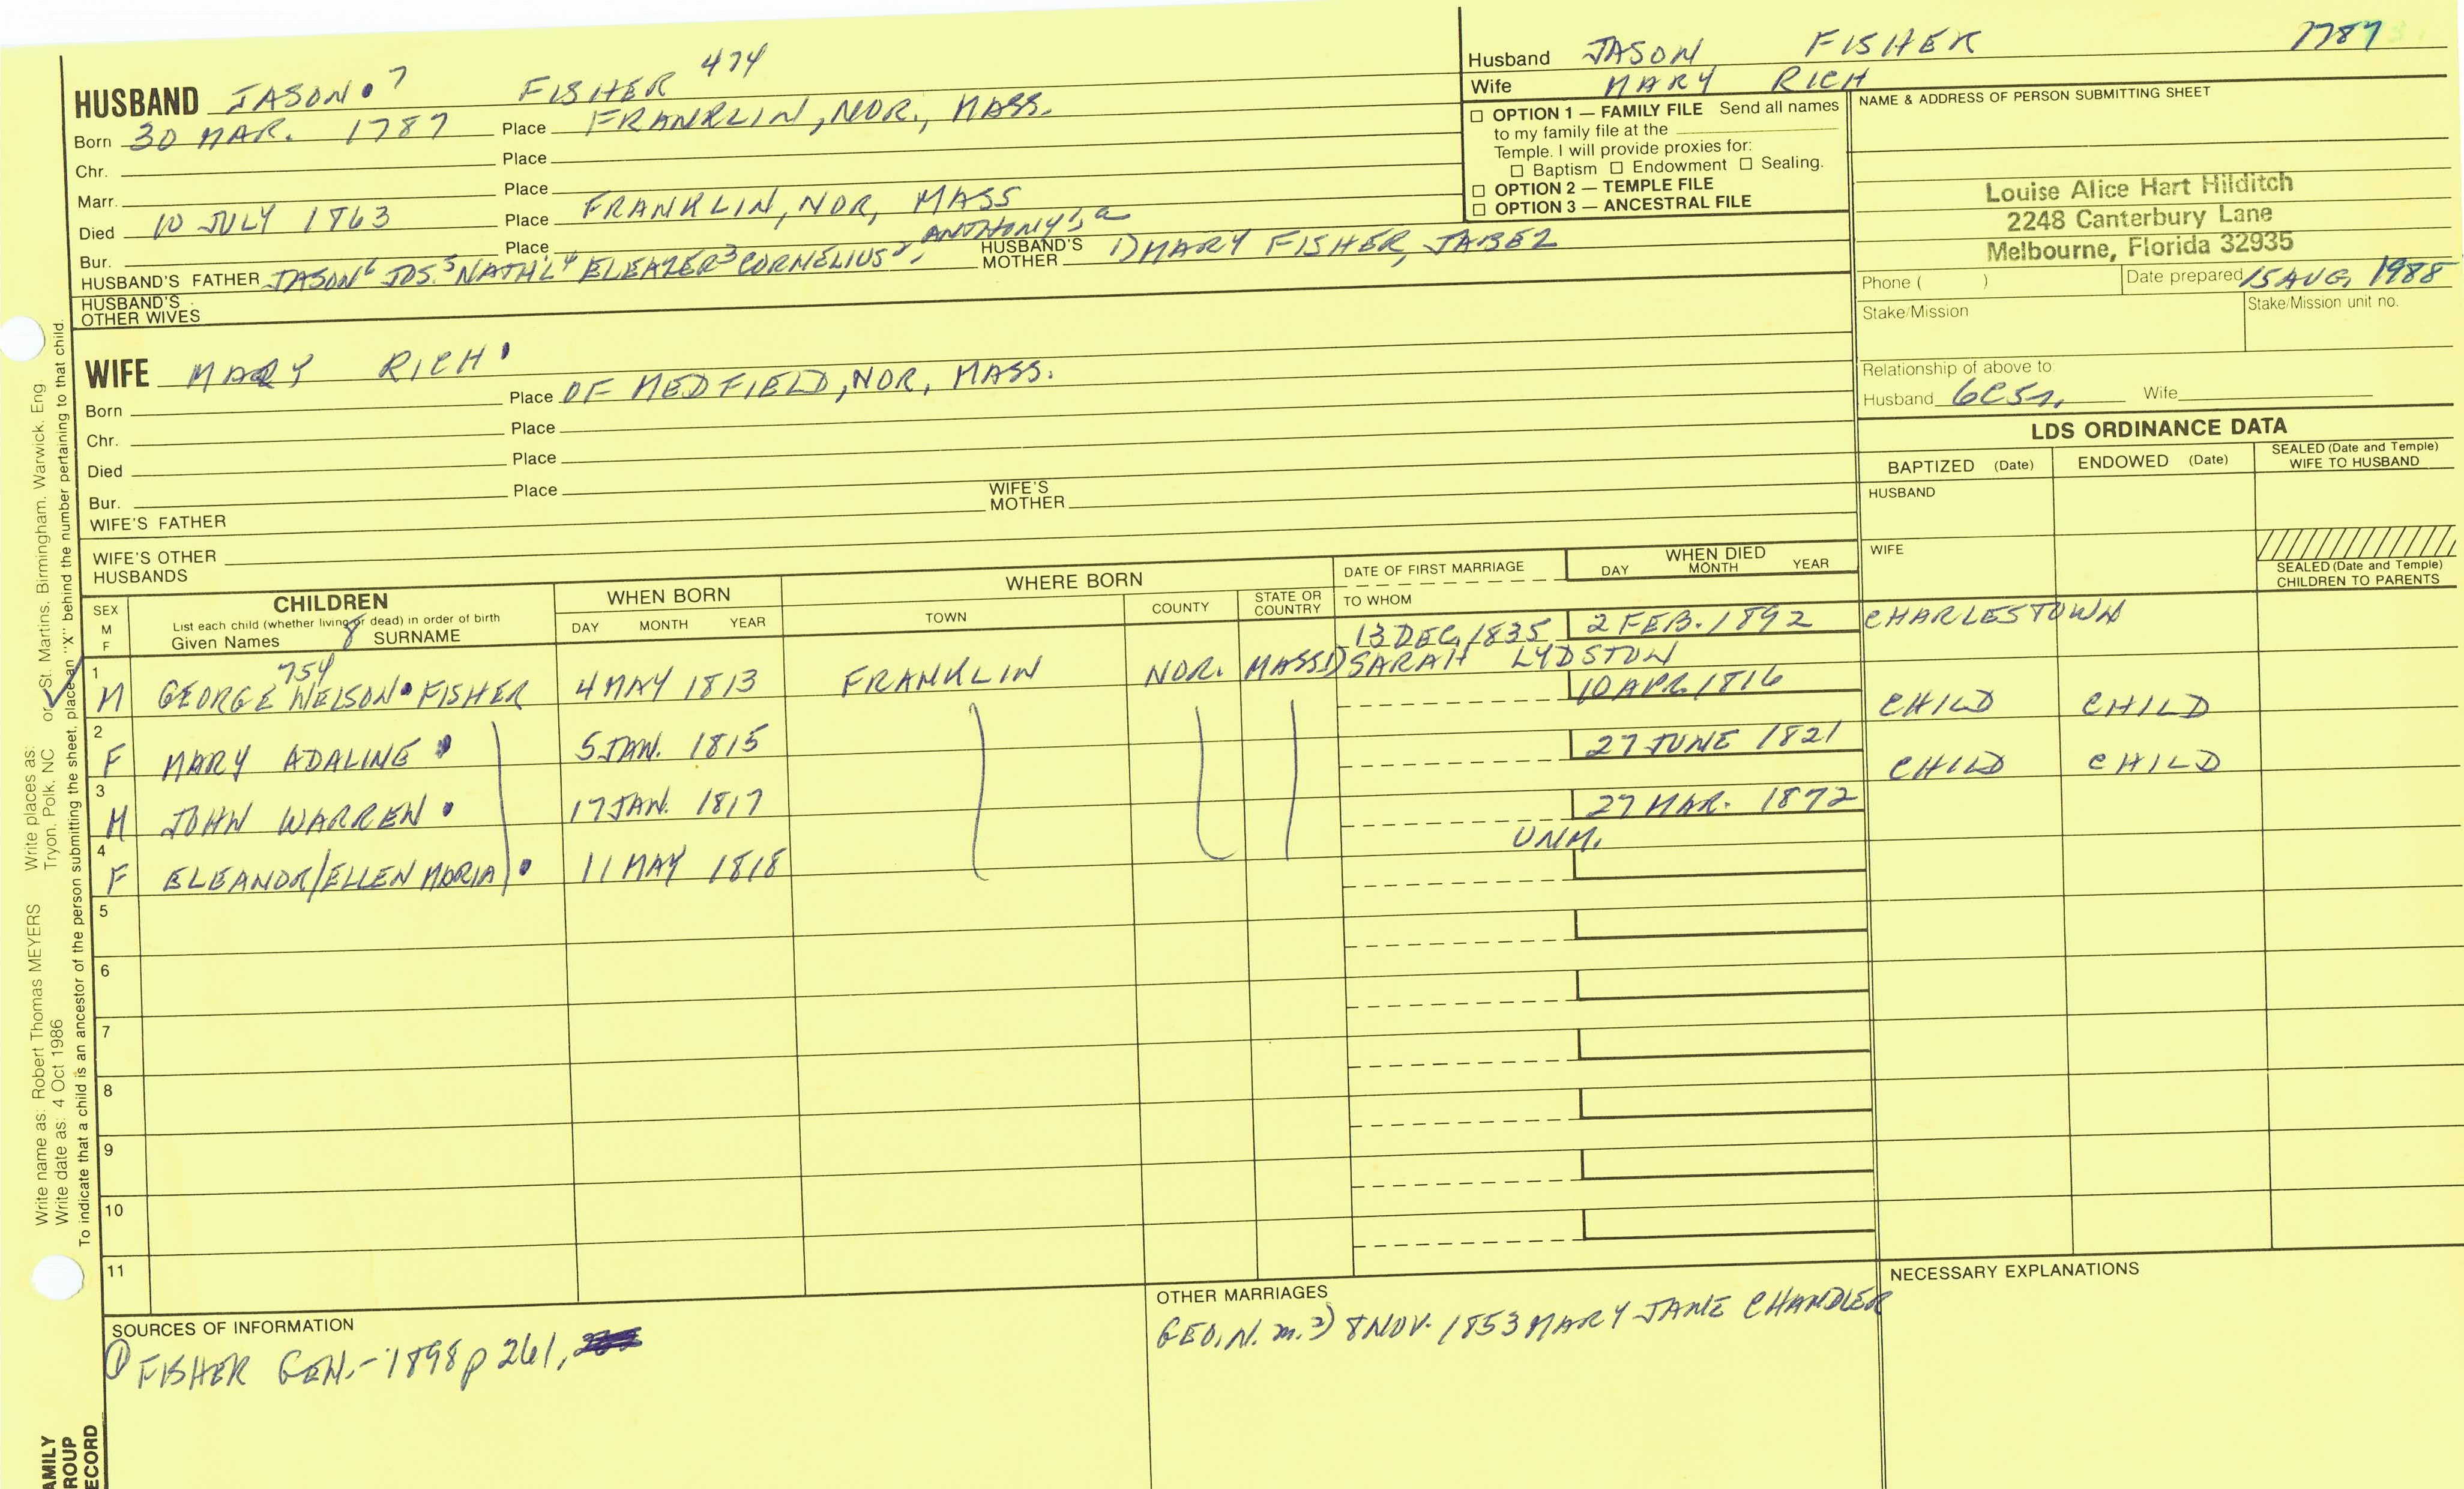 HUSBAND JASON 7 FISHER 474
Born 30 MAR. 1787 Place FRANKLIN, NOR., MASS.
Chr. Place
Marr. Place
Died 10 JULY 1863 Place FRANKLIN, NOR, MASS
Bur. Place
HUSBAND'S FATHER JASON6 JOS.5 NATH'L4 ELEAZER3 CORNELIUS2, ANTHONY1, a HUSBAND'S MOTHER 1) MARY FISHER, JABEZ
HUSBAND'S OTHER WIVES
Husband JASON FISHER 1787
Wife MARY RICH
□ OPTION 1 — FAMILY FILE Send all names
to my family file at the
Temple. I will provide proxies for:
□ Baptism □ Endowment □ Sealing.
□ OPTION 2 — TEMPLE FILE
□ OPTION 3 — ANCESTRAL FILE
NAME & ADDRESS OF PERSON SUBMITTING SHEET
Louise Alice Hart Hilditch
2248 Canterbury Lane
Melbourne, Florida 32935
Phone ( ) Date prepared 15 AUG, 1988
Stake/Mission Stake/Mission unit no.
Relationship of above to
Husband 6C5r. Wife
WIFE MARY RICH
Born Place OF MEDFIELD, NOR, MASS.
Chr. Place
Died Place
Bur. Place
WIFE'S FATHER WIFE'S MOTHER
WIFE'S OTHER HUSBANDS
LDS ORDINANCE DATA
BAPTIZED (Date) ENDOWED (Date) SEALED (Date and Temple) WIFE TO HUSBAND
HUSBAND
WIFE
SEALED (Date and Temple) CHILDREN TO PARENTS
SEX M F CHILDREN WHEN BORN WHERE BORN DATE OF FIRST MARRIAGE WHEN DIED
List each child (whether living or dead) in order of birth
Given Names 8 SURNAME DAY MONTH YEAR TOWN COUNTY STATE OR COUNTRY TO WHOM DAY MONTH YEAR
13 DEC, 1835 2 FEB. 1892 CHARLESTOWN
1 M 754 GEORGE NELSON FISHER 4 MAY 1813 FRANKLIN NOR. MASS 1) SARAH LYDSTON
10 APR. 1816 CHILD CHILD
2 F MARY ADALINE 5 JAN. 1815
27 JUNE 1821 CHILD CHILD
3 M JOHN WARREN 17 JAN. 1817
27 MAR. 1872
4 F ELEANOR/ELLEN MARIA 11 MAY 1818 UNM.
5
6
7
8
9
10
11
SOURCES OF INFORMATION
① FISHER GEN.-1898 p 261,
OTHER MARRIAGES
GEO. N. m. 2) 8 NOV. 1853 MARY JANE CHANDLER
NECESSARY EXPLANATIONS
Write name as: Robert Thomas MEYERS Write places as: Tryon, Polk, NC or St. Martins, Birmingham, Warwick, Eng
Write date as: 4 Oct 1986
To indicate that a child is an ancestor of the person submitting the sheet, place an "X" behind the number pertaining to that child.
AMILY
ROUP
ECORD